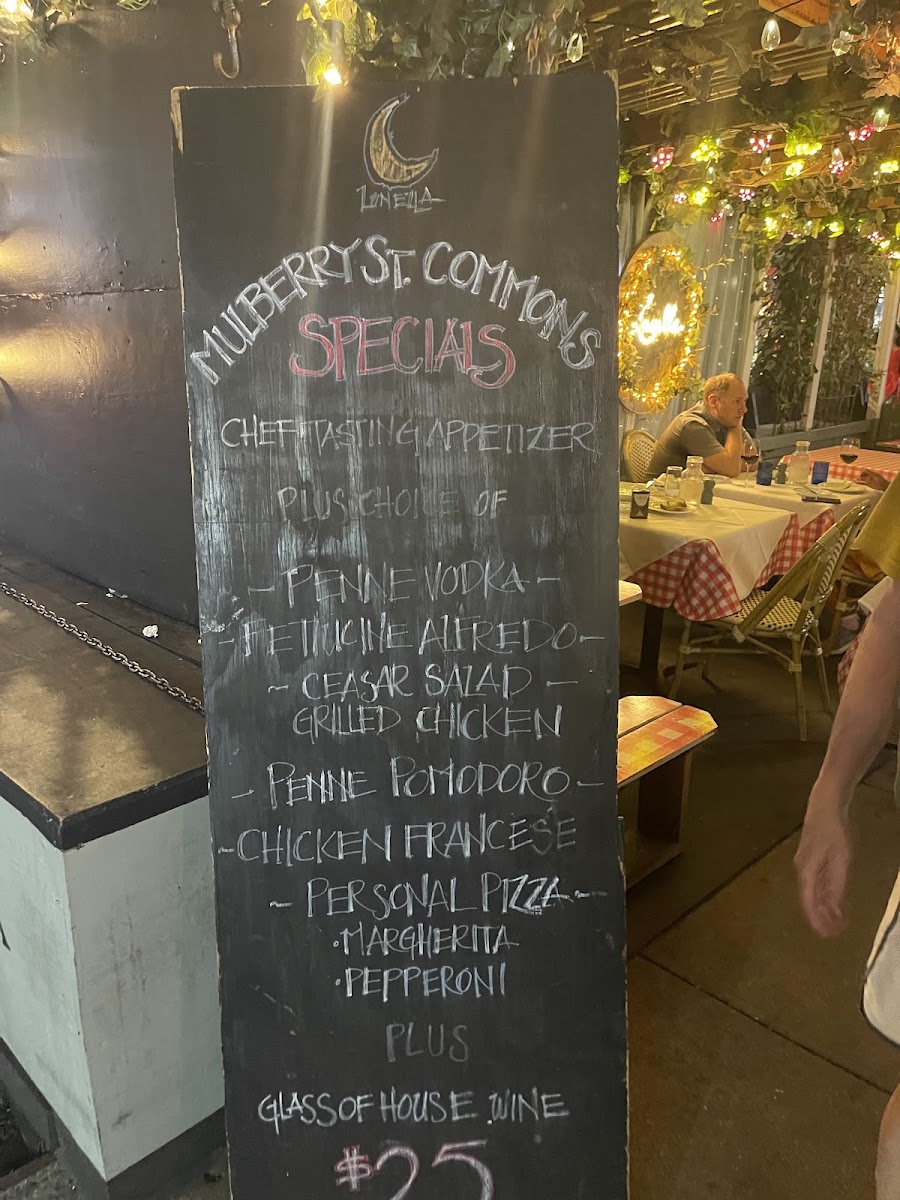 LUNELLA
MULBERRY ST. COMMONS
SPECIALS
CHEF TASTING APPETIZER
PLUS CHOICE OF
- PENNE VODKA -
- FETTUCINE ALFREDO -
~ CEASAR SALAD -
GRILLED CHICKEN
- PENNE POMODORO -
~ CHICKEN FRANCESE
~ PERSONAL PIZZA ~
• MARGHERITA
• PEPPERONI
PLUS
GLASS OF HOUSE WINE
$25